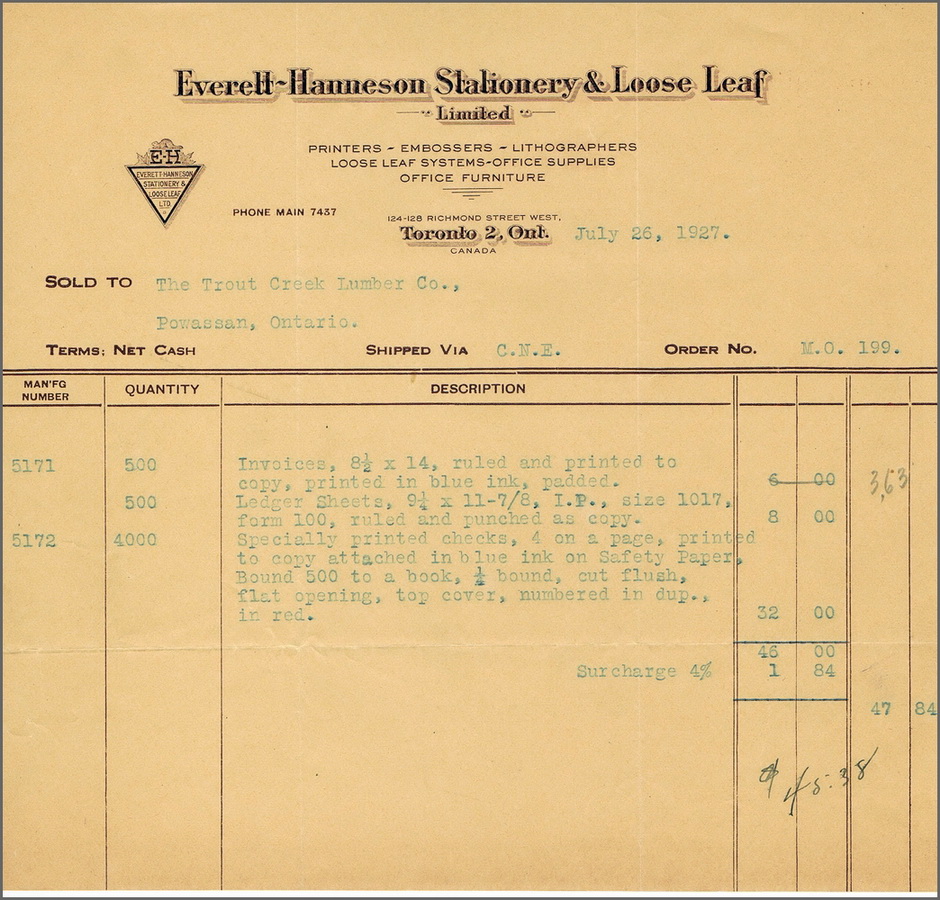 Everett-Hanneson Stationery & Loose Leaf
Limited
PRINTERS - EMBOSSERS - LITHOGRAPHERS
LOOSE LEAF SYSTEMS-OFFICE SUPPLIES
OFFICE FURNITURE
E-H
EVERETT-HANNESON
STATIONERY &
LOOSE LEAF
LTD.
PHONE MAIN 7437
124-128 RICHMOND STREET WEST,
Toronto 2, Ont. July 26, 1927.
CANADA
SOLD TO The Trout Creek Lumber Co.,
Powassan, Ontario.
TERMS: NET CASH SHIPPED VIA C.N.E. ORDER NO. M.O. 199.
MAN'FG NUMBER QUANTITY DESCRIPTION
5171 500 Invoices, 8½ x 14, ruled and printed to
copy, printed in blue ink, padded. 6 00 3,63
500 Ledger Sheets, 9¼ x 11-7/8, I.P., size 1017,
form 100, ruled and punched as copy. 8 00
5172 4000 Specially printed checks, 4 on a page, printed
to copy attached in blue ink on Safety Paper,
Bound 500 to a book, ¼ bound, cut flush,
flat opening, top cover, numbered in dup.,
in red. 32 00
46 00
Surcharge 4% 1 84
47 84
$45.38